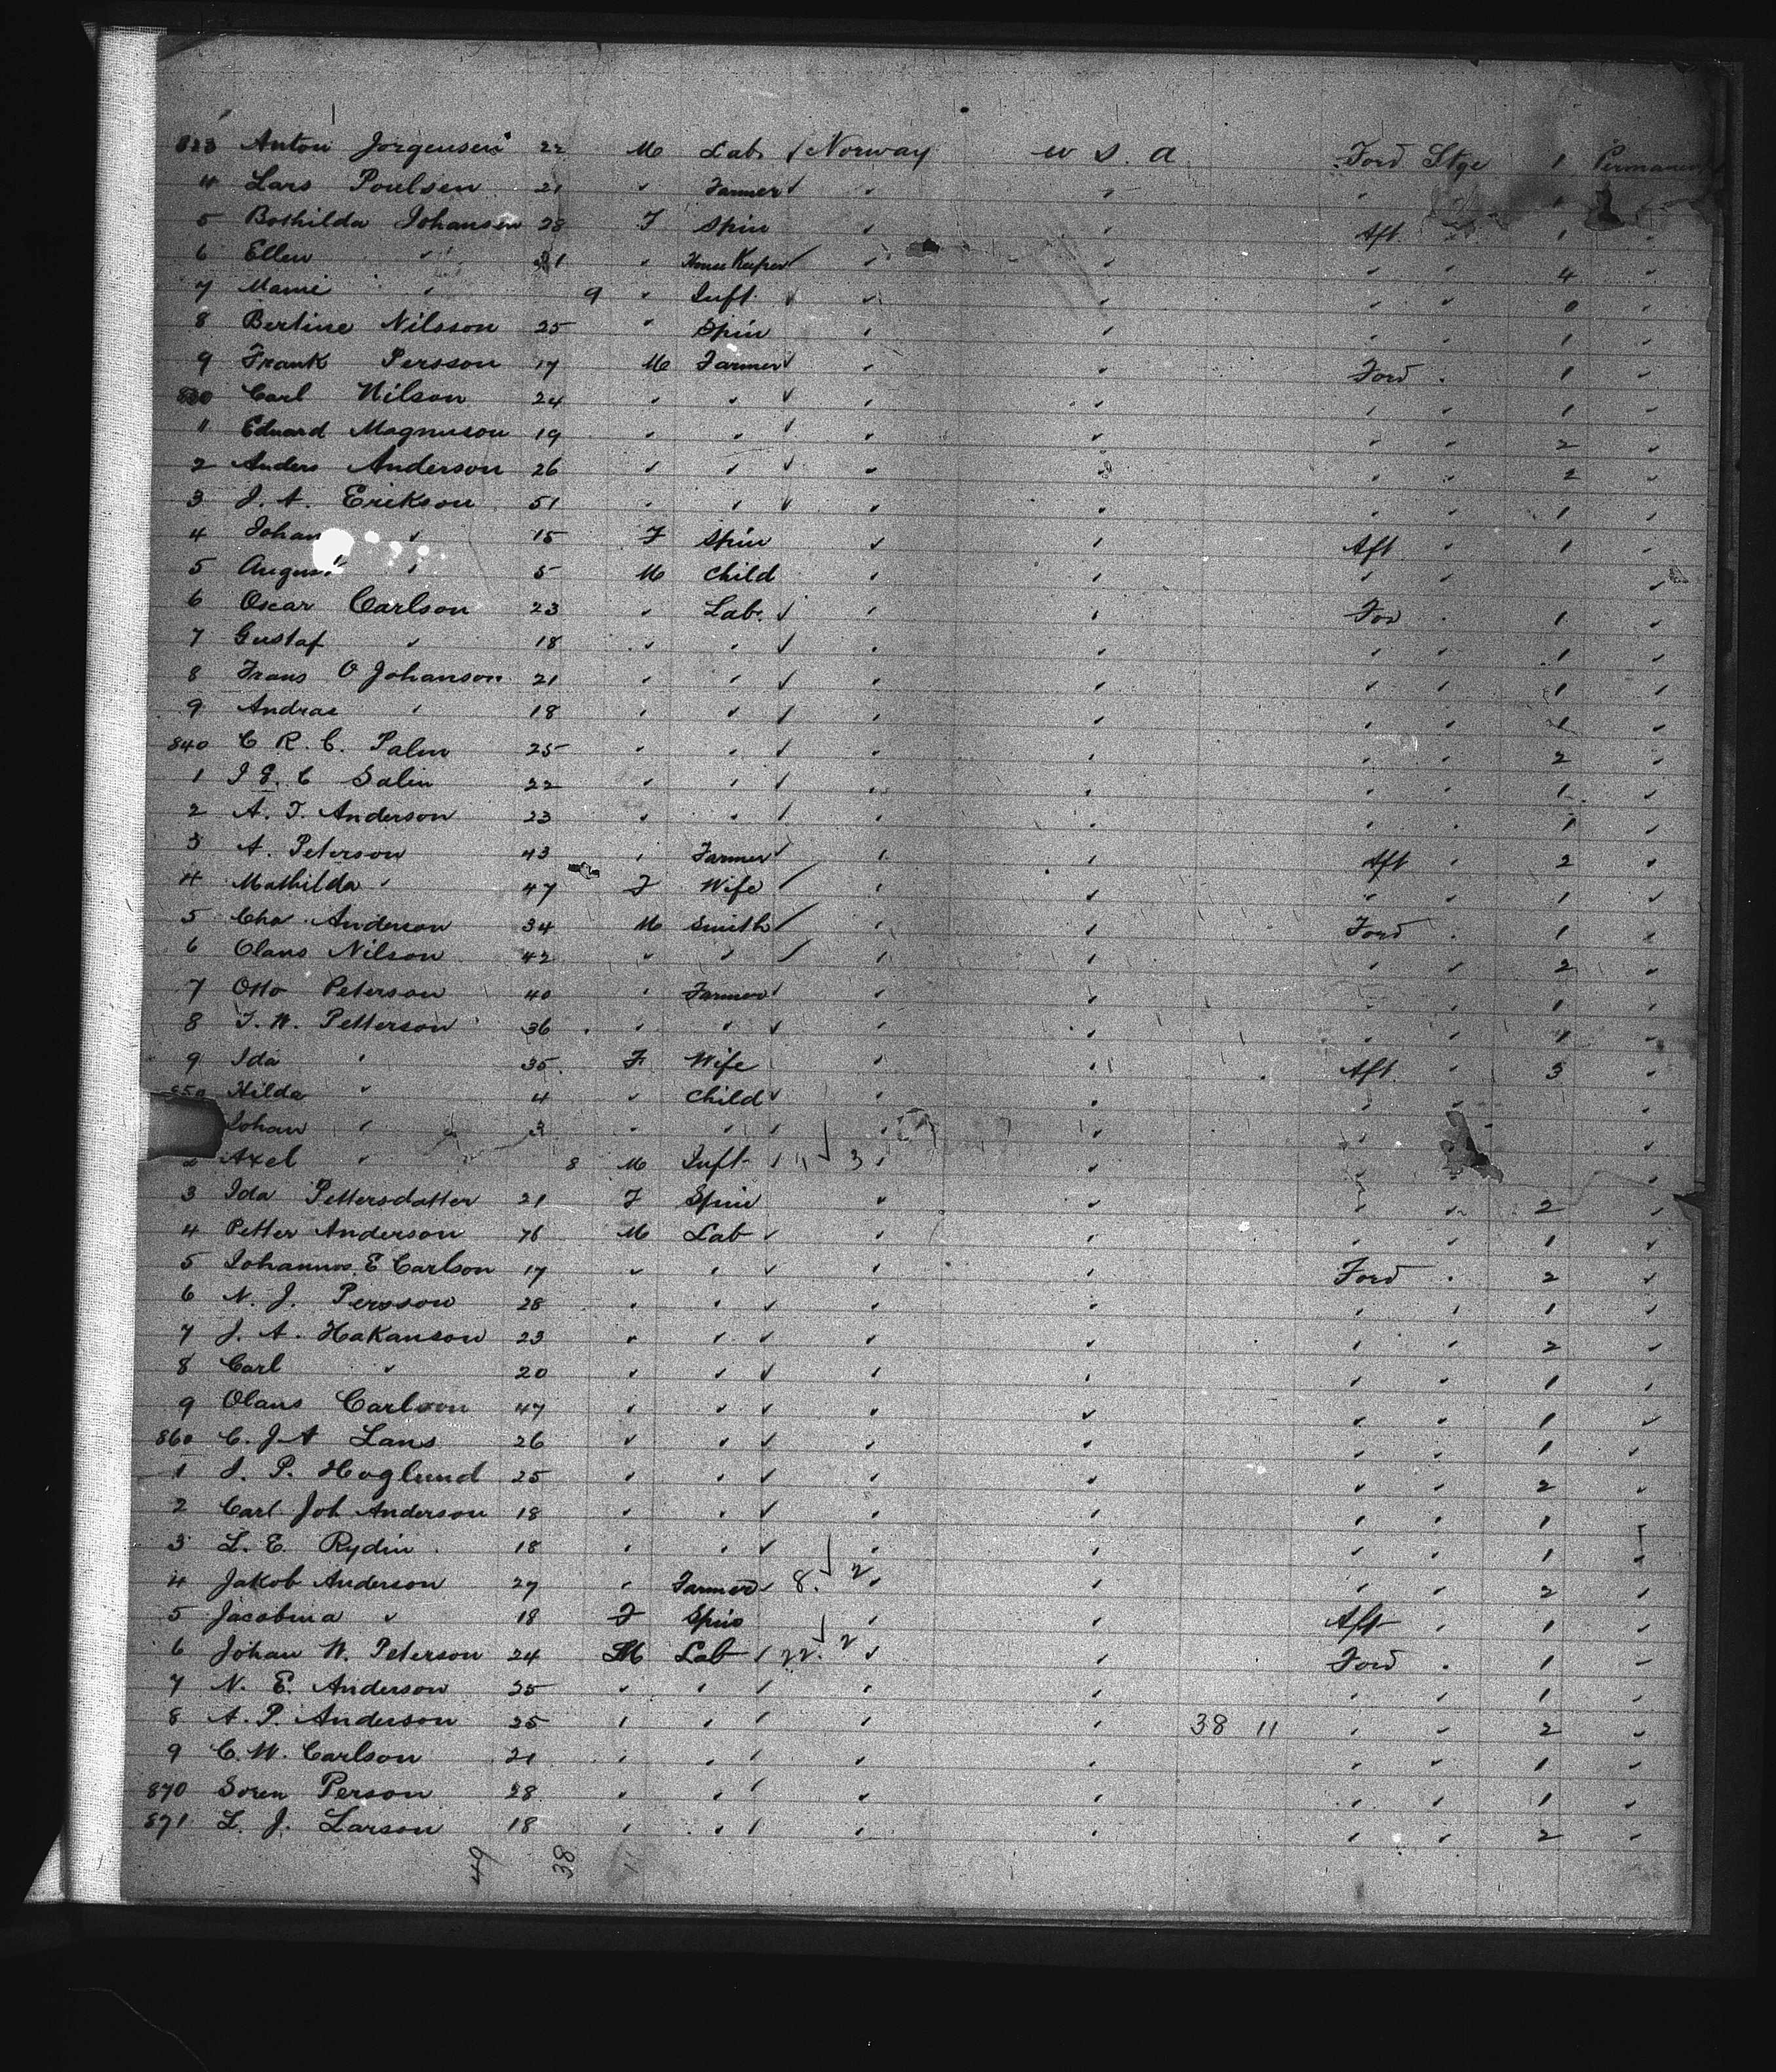 823 Anton Jorgensen 22 M Lab. Norway U S. A Ford Stge 1 Permanent
4 Lars Poulsen 21 " Farmer " " " 1
5 Bothilda Johansen 28 F Spin " " Aft " 1 "
6 Ellen " 21 " House Keeper " " " " 4 "
7 Mamie " 9 " Inft. " " " " 0 "
8 Bertine Nilsson 25 " Spin " " " " 1 "
9 Frank Persson 17 M Farmer " " Ford " 1 "
830 Carl Nilson 24 " " " " " " 1 "
" Edward Magnuson 19 " " " " " " 2 "
2 Anders Anderson 26 " " " " " " 2 "
3 J. A. Erikson 51 " " " " " " 1 "
4 Johan " 15 F Spin " " Aft " 1 "
5 August " 5 M Child " " " " "
6 Oscar Carlson 23 " Lab. " " For " 1 "
7 Gustaf " 18 " " " " " " 1 "
8 Frans O Johanson 21 " " " " " " 1 "
9 Andrae " 18 " " " " " " 1 "
840 C R. C. Palm 25 " " " " " " 2 "
1 J E. C Salin 22 " " " " " " 1 "
2 A. T. Anderson 23 " " " " " " 1 "
3 A. Peterson 43 " Farmer " " Aft " 2 "
4 Mathilda " 47 F Wife " " " " 1 "
5 Cha. Anderson 34 M Smith " " Ford " 1 "
6 Olaus Nilson 42 " " " " " " 2 "
7 Otto Peterson 40 " Farmer " " " " 1 "
8 J. W. Petterson 36 " " " " " " 1 "
9 Ida " 35 F Wife " " Aft " 3 "
850 Hilda " 4 " Child " " " " "
Johan " 3 " " " " " "
2 Axel " 8 M Inft 11 3 " " " "
3 Ida Pettersdatter 21 F Spin " " " " 2 "
4 Petter Anderson 76 M Lab " " " " 1 "
5 Johannes E Carlson 17 " " " " Ford " 2 "
6 N. J. Persson 28 " " " " " " 1 "
7 J. A. Hakanson 23 " " " " " " 2 "
8 Carl " 20 " " " " " " 1 "
9 Olaus Carlson 47 " " " " " " 1 "
860 C. J. A Lans 26 " " " " " " 1 "
1 J. P. Hoglund 25 " " " " " " 2 "
2 Carl Joh Anderson 18 " " " " " " 1
3 L. E. Rydin 18 " " " " " " 1 "
4 Jakob Anderson 27 " Farmer 8. 2 " " " " 2 "
5 Jacobina " 18 F Spin " " Aft " 1 "
6 Johan W. Peterson 24 M Lab 22. 2 " " Ford " 1 "
7 N. E. Anderson 25 " " " " " " 1 "
8 A. P. Anderson 25 " " " " 38 11 " " 2 "
9 C. W. Carlson 21 " " " " " " 1 "
870 Soren Person 28 " " " " " " 1 "
871 L. J. Larson 18 " " " " " " 2 "
49 38 11